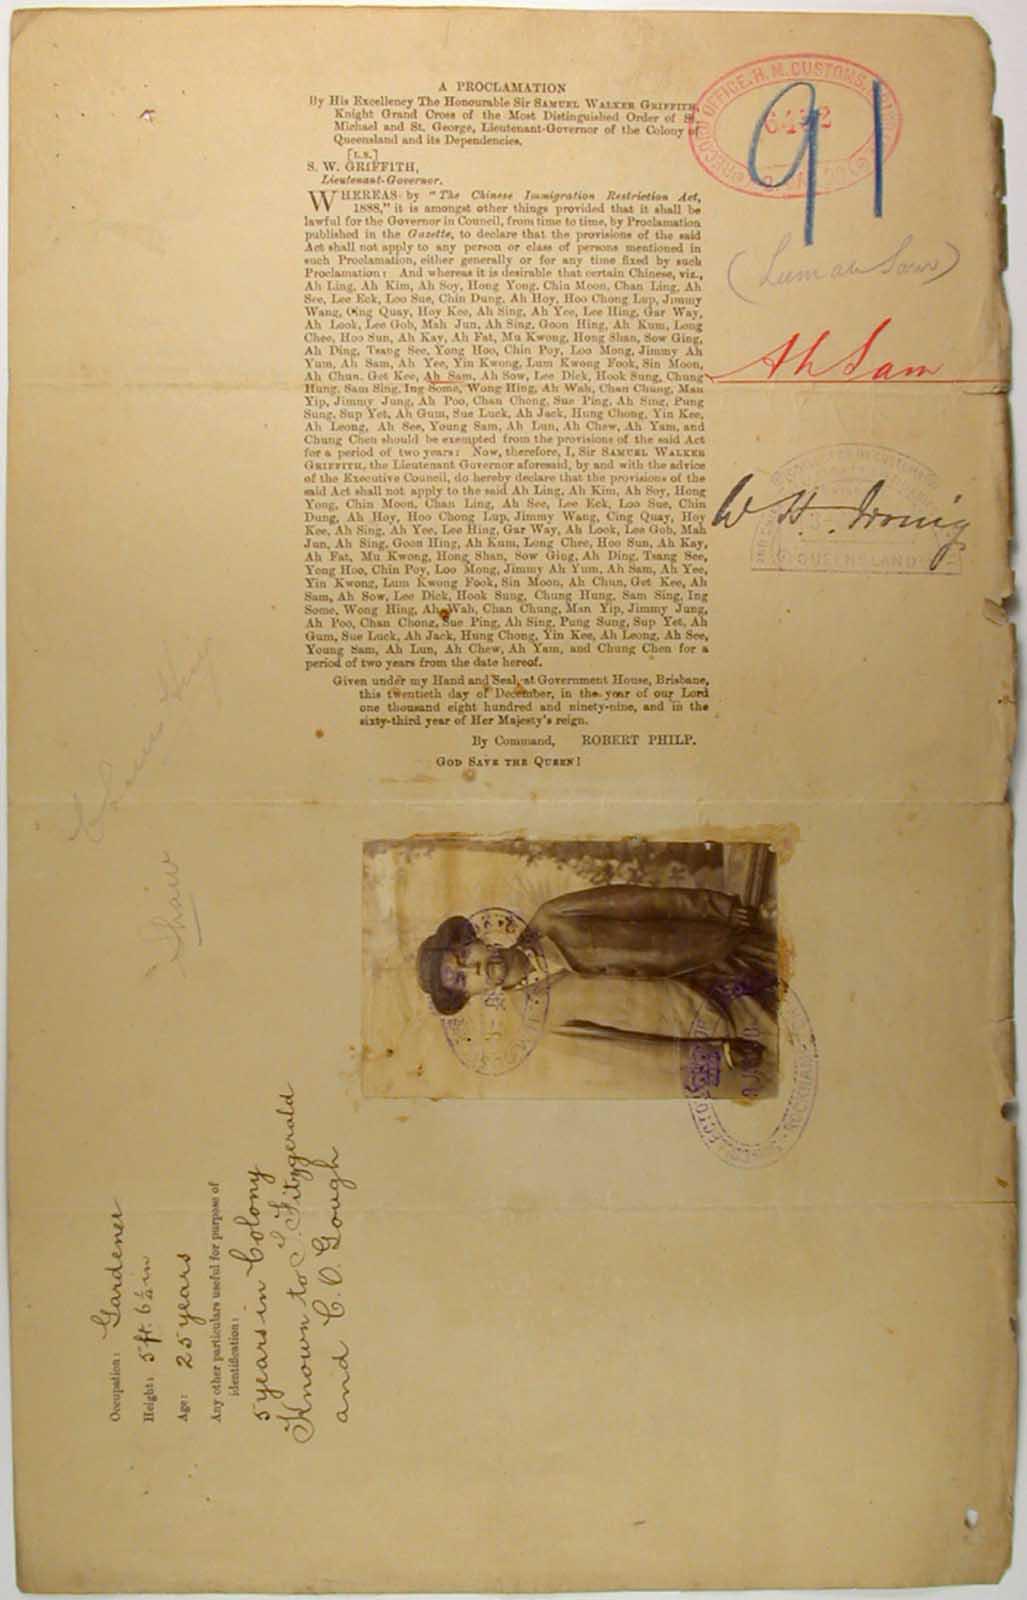 A PROCLAMATION
By His Excellency The Honourable Sir SAMUEL WALKER GRIFFITH,
Knight Grand Cross of the Most Distinguished Order of St.
Michael and St. George, Lieutenant-Governor of the Colony of
Queensland and its Dependencies.
[L.S.]
S. W. GRIFFITH,
Lieutenant-Governor.
WHEREAS by "The Chinese Immigration Restriction Act,
1888," it is amongst other things provided that it shall be
lawful for the Governor in Council, from time to time, by Proclamation
published in the Gazette, to declare that the provisions of the said
Act shall not apply to any person or class of persons mentioned in
such Proclamation, either generally or for any time fixed by such
Proclamation: And whereas it is desirable that certain Chinese, viz.,
Ah Ling, Ah Kim, Ah Soy, Hong Yong, Chin Moon, Chan Ling, Ah
See, Lee Eck, Loo Sue, Chin Dung, Ah Hoy, Hoo Chong Lup, Jimmy
Wang, Cing Quay, Hoy Kee, Ah Sing, Ah Yee, Lee Hing, Gar Way,
Ah Look, Lee Gob, Mah Jun, Ah Sing, Goon Hing, Ah Kum, Long
Chee, Hoo Sun, Ah Kay, Ah Fat, Mu Kwong, Hong Shan, Sow Ging,
Ah Ding, Tsang See, Yong Hoo, Chin Poy, Loo Mong, Jimmy Ah
Yum, Ah Sam, Ah Yee, Yin Kwong, Lum Kwong Fook, Sin Moon,
Ah Chun, Get Kee, Ah Sam, Ah Sow, Lee Dick, Hook Sung, Chung
Hung, Sam Sing, Ing Some, Wong Hing, Ah Wah, Chan Chung, Man
Yip, Jimmy Jung, Ah Poo, Chan Chong, Sue Ping, Ah Sing, Pung
Sung, Sup Yet, Ah Gum, Sue Luck, Ah Jack, Hung Chong, Yin Kee,
Ah Leong, Ah See, Young Sam, Ah Lun, Ah Chew, Ah Yam, and
Chung Chen should be exempted from the provisions of the said Act
for a period of two years: Now, therefore, I, Sir SAMUEL WALKER
GRIFFITH, the Lieutenant Governor aforesaid, by and with the advice
of the Executive Council, do hereby declare that the provisions of the
said Act shall not apply to the said Ah Ling, Ah Kim, Ah Soy, Hong
Yong, Chin Moon, Chan Ling, Ah See, Lee Eck, Loo Sue, Chin
Dung, Ah Hoy, Hoo Chong Lup, Jimmy Wang, Cing Quay, Hoy
Kee, Ah Sing, Ah Yee, Lee Hing, Gar Way, Ah Look, Lee Gob, Mah
Jun, Ah Sing, Goon Hing, Ah Kum, Long Chee, Hoo Sun, Ah Kay,
Ah Fat, Mu Kwong, Hong Shan, Sow Ging, Ah Ding, Tsang See,
Yong Hoo, Chin Poy, Loo Mong, Jimmy Ah Yum, Ah Sam, Ah Yee,
Yin Kwong, Lum Kwong Fook, Sin Moon, Ah Chun, Get Kee, Ah
Sam, Ah Sow, Lee Dick, Hook Sung, Chung Hung, Sam Sing, Ing
Some, Wong Hing, Ah Wah, Chan Chung, Man Yip, Jimmy Jung,
Ah Poo, Chan Chong, Sue Ping, Ah Sing, Pung Sung, Sup Yet, Ah
Gum, Sue Luck, Ah Jack, Hung Chong, Yin Kee, Ah Leong, Ah See,
Young Sam, Ah Lun, Ah Chew, Ah Yam, and Chung Chen for a
period of two years from the date hereof.
Given under my Hand and Seal, at Government House, Brisbane,
this twentieth day of December, in the year of our Lord
one thousand eight hundred and ninety-nine, and in the
sixty-third year of Her Majesty's reign.
By Command, ROBERT PHILP.
GOD SAVE THE QUEEN!
RECORD OFFICE. H. M. CUSTOMS.
91
Ah Sam
W H Irving
QUEENSLAND
Shaw
Occupation: Gardener
Height: 5 ft. 6½ in
Age: 25 years
Any other particulars useful for purpose of
identification:
5 years in Colony
Known to T. Fitzgerald
and C. O. Gough